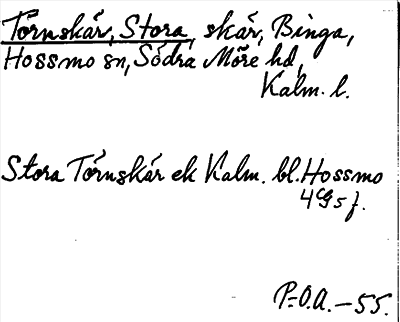 Törnskär, Stora, skär, Binga,
Hossmo sn, Södra Möre hd,
Kalm. l.
Stora Törnskär ek Kalm. bl. Hossmo
4G5f.
P.O.A. – 55.